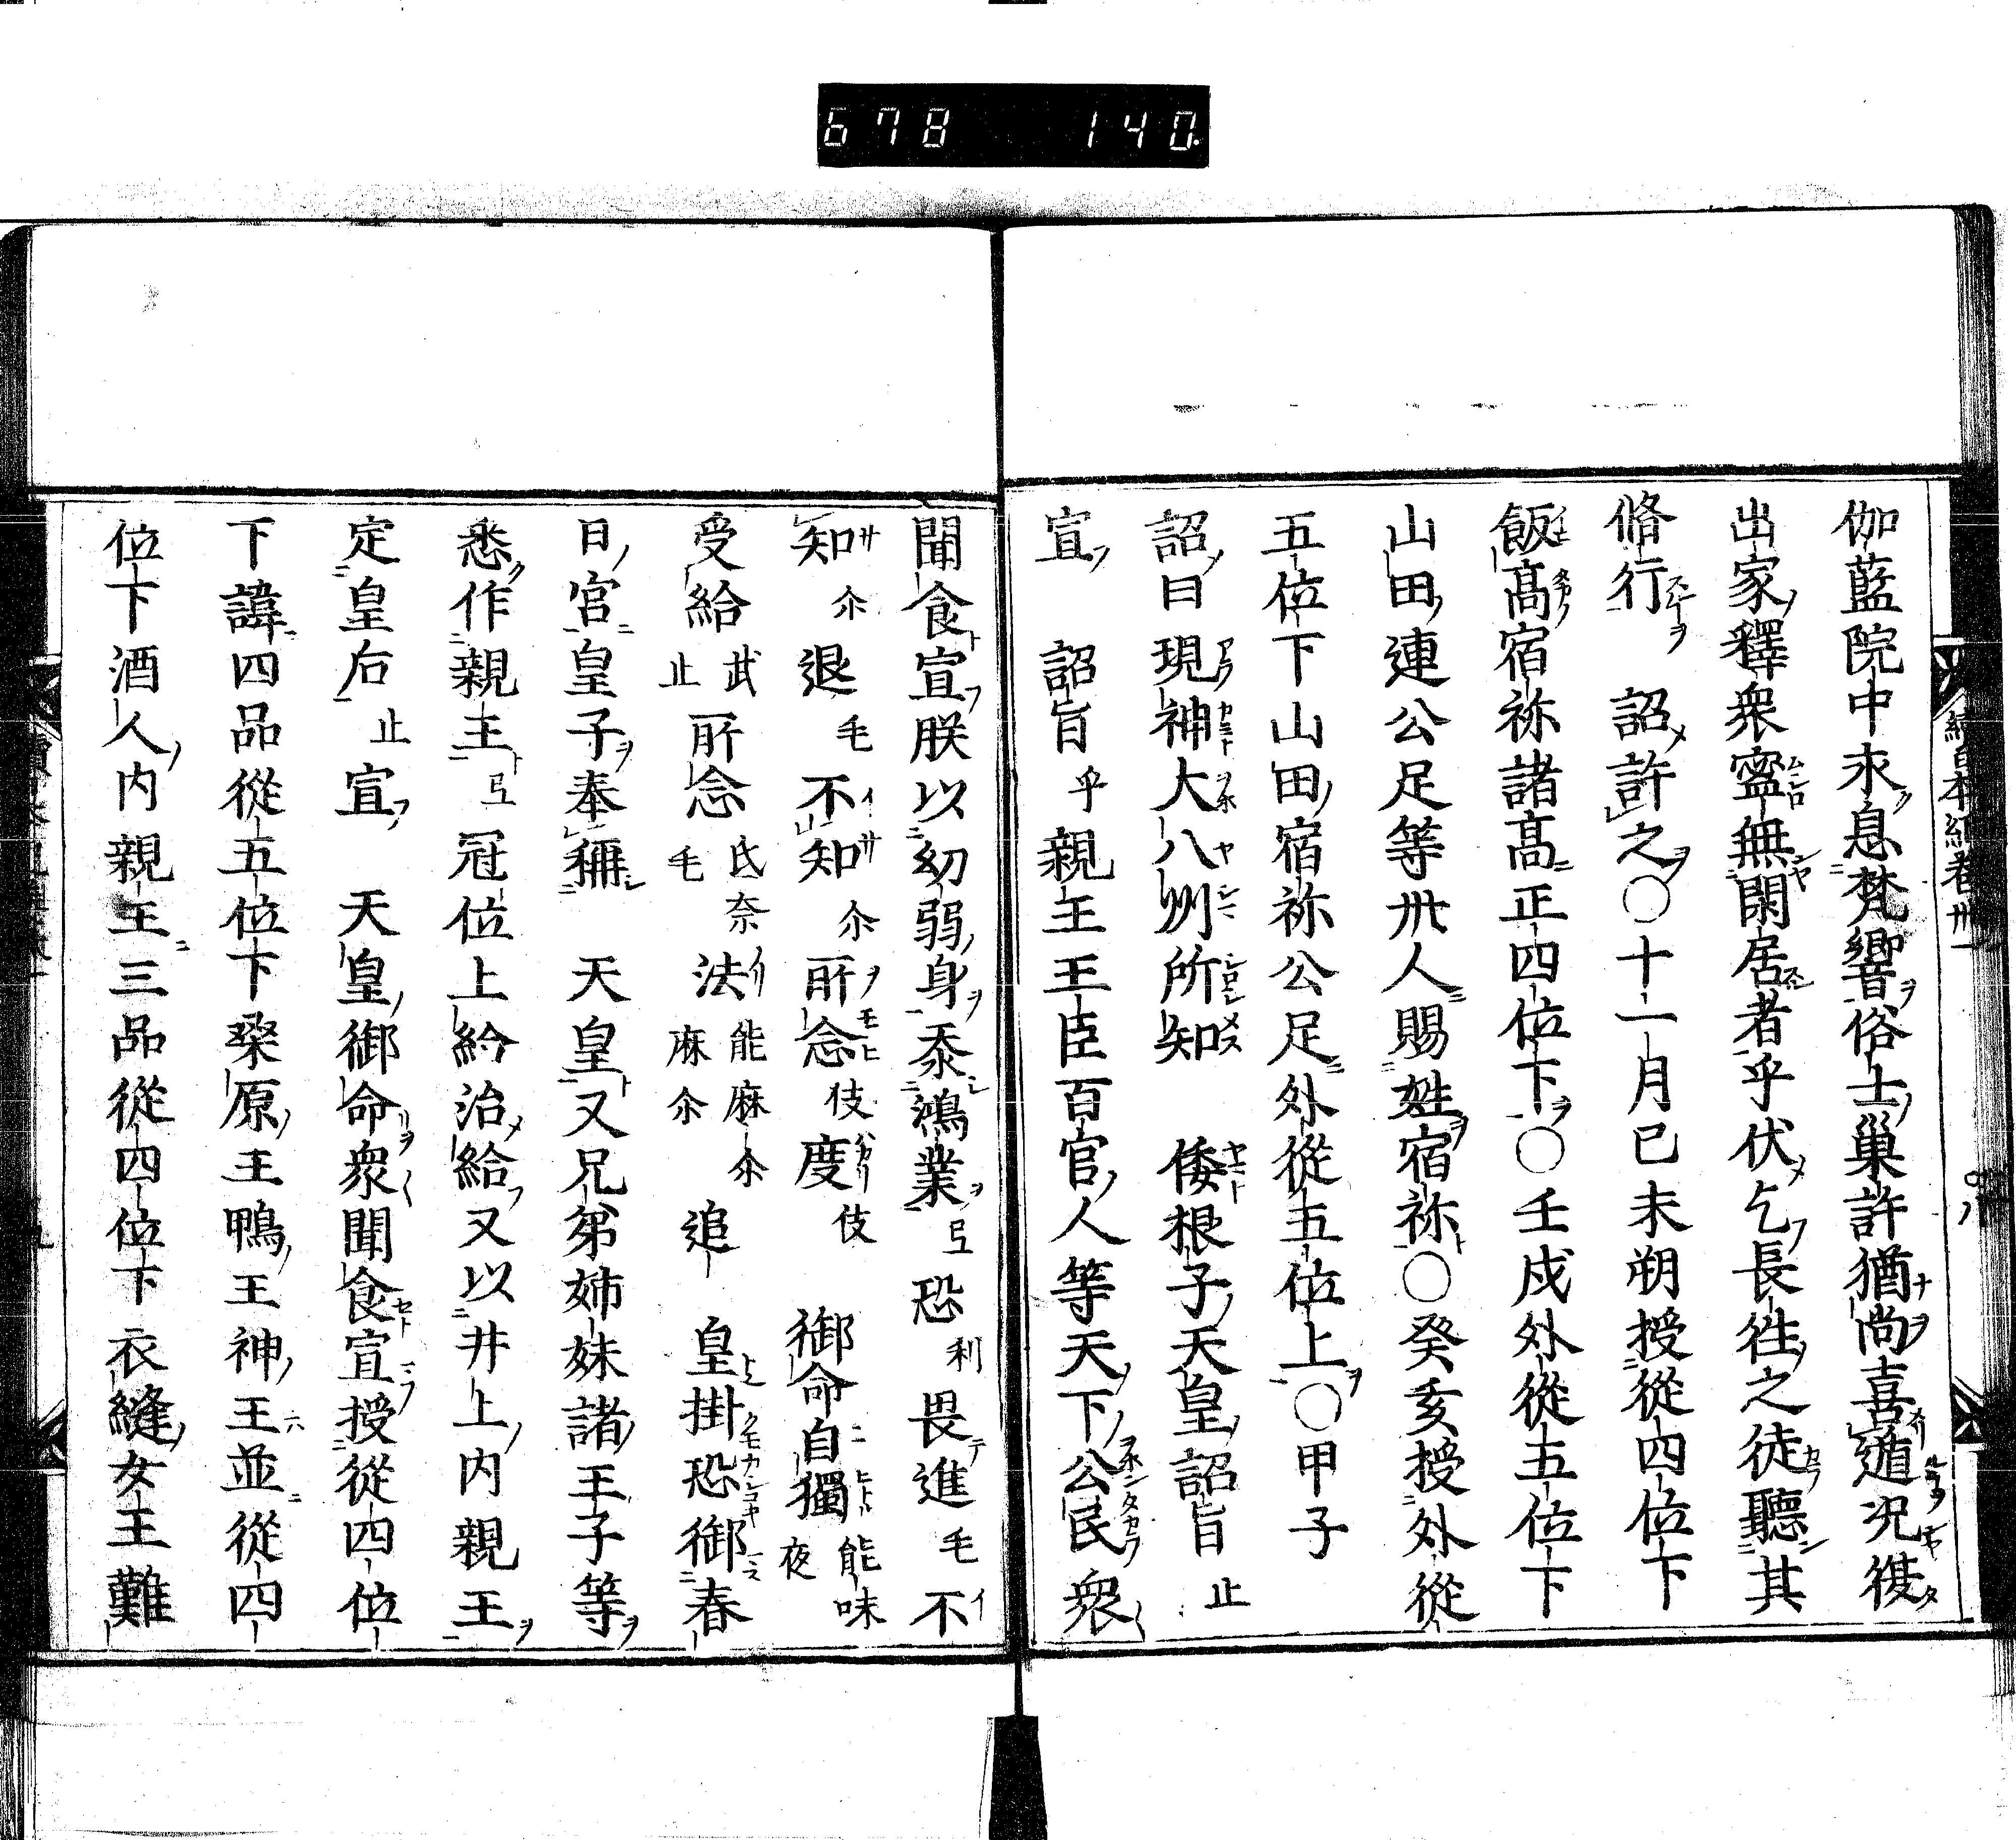 678 140.
續日本紀卷卅一
伽藍院中永息梵響俗士巢許猶尚喜遁況復
出家釋衆寧無閑居者乎伏乞長往之徒聽其
脩行 詔許之〇十一月已未朔授從四位下
飯高宿祢諸高正四位下〇壬戌外從五位下
山田連公足等卅人賜姓宿祢〇癸亥授外從
五位下山田宿祢公足外從五位上〇甲子
詔曰現神大八州所知 倭根子天皇詔旨止
宣 詔旨乎親王王臣百官人等天下公民衆
聞食宣朕以幼弱身忝鴻業弖恐利畏進毛不
知尒退毛不知尒所念伎度伎 御命自獨能味夜
受給武止所念氐奈毛法能麻尒麻尒追 皇掛恐御春
日宮皇子奉稱 天皇又兄弟姉妹諸王子等
悉作親王弖冠位上給治給又以井上内親王
定皇后止宣 天皇御命衆聞食宣授從四位
下諱四品從五位下桑原王鴨王神王並從四
位下酒人内親王三品從四位下衣縫女王難